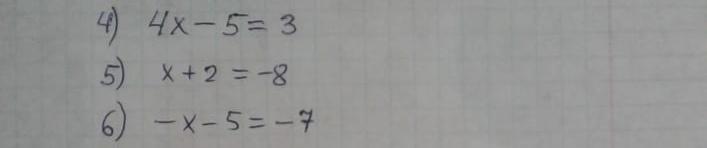 4) 4x - 5 = 3
5) x + 2 = -8
6) -x - 5 = -7